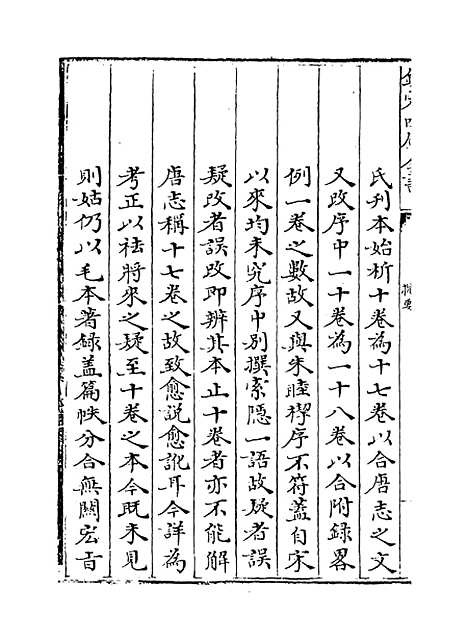 氏刊本始析十卷為十七卷以合唐志之文
又改序中一十卷為一十八卷以合附録畧
例一卷之數故又與朱睦㮮序不符蓋自宋
以來均未究序中别撰索隠一語故疑者誤
疑改者誤改即辨其本止十卷者亦不能解
唐志稱十七卷之故致愈説愈訛耳今詳為
考正以袪將來之疑至十卷之本今既未見
則姑仍以毛本著録盖篇帙分合無關宏㫖
提要